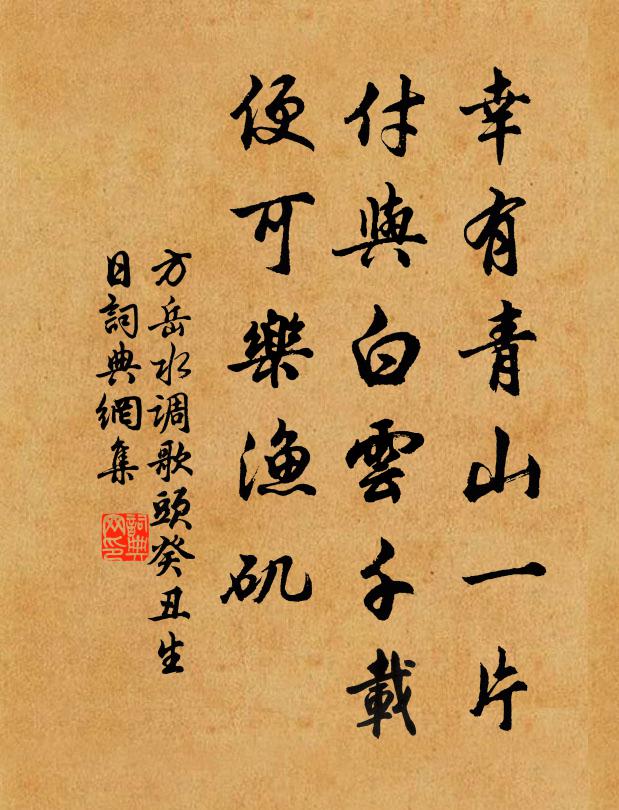 幸有青山一片
付與白雲千載
便可樂漁矶
方岳水调歌頭癸丑生
日詞典網集
詞典
网印